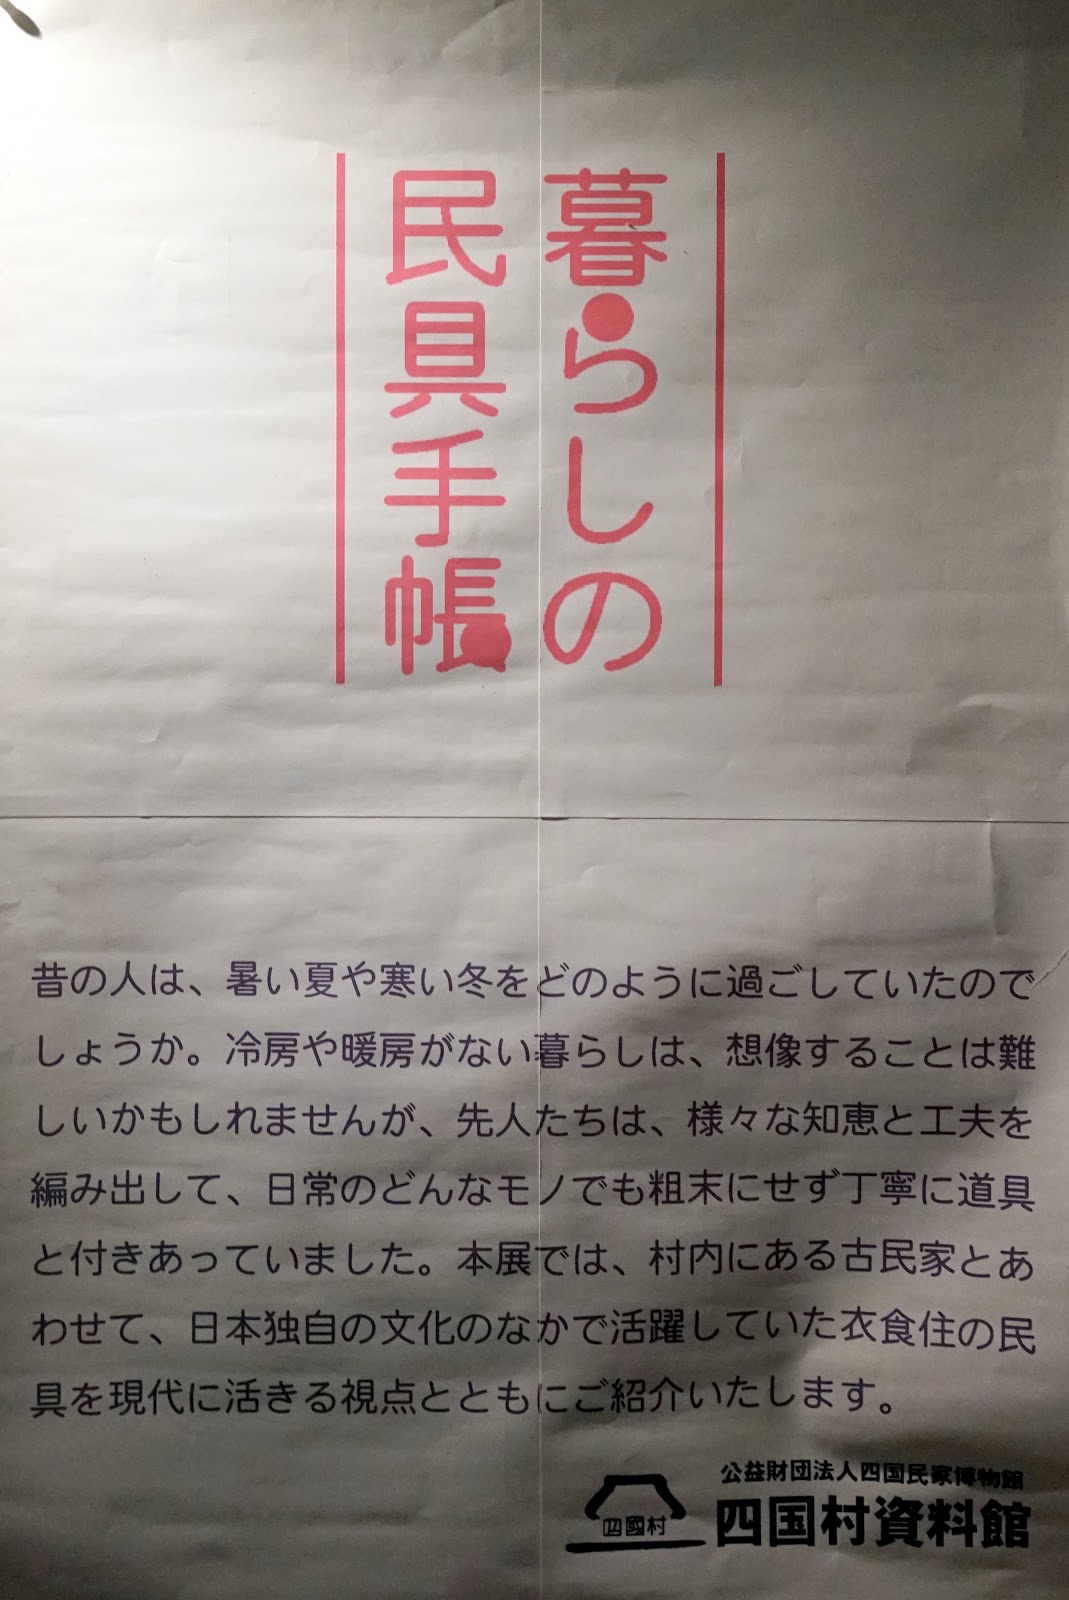 暮らしの
民具手帳
昔の人は、暑い夏や寒い冬をどのように過ごしていたので
しょうか。冷房や暖房がない暮らしは、想像することは難
しいかもしれませんが、先人たちは、様々な知恵と工夫を
編み出して、日常のどんなモノでも粗末にせず丁寧に道具
と付きあっていました。本展では、村内にある古民家とあ
わせて、日本独自の文化のなかで活躍していた衣食住の民
具を現代に活きる視点とともにご紹介いたします。
公益財団法人四国民家博物館
四国村資料館
四國村